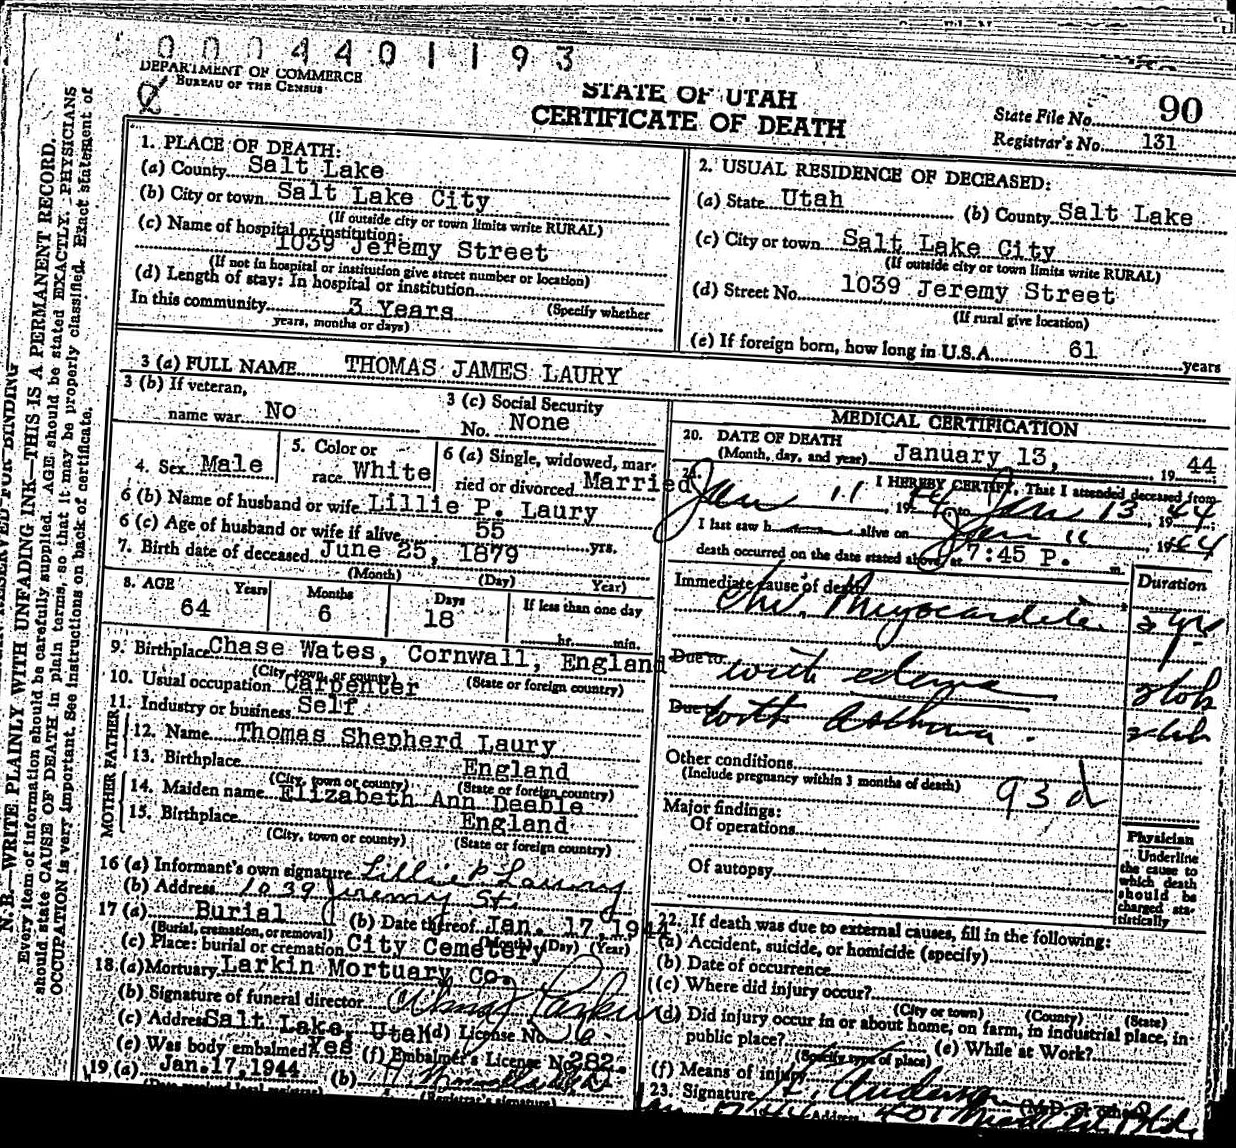 0004401193
DEPARTMENT OF COMMERCE
BUREAU OF THE CENSUS
STATE OF UTAH
CERTIFICATE OF DEATH
State File No. 90
Registrar's No. 131
1. PLACE OF DEATH:
(a) County Salt Lake
(b) City or town Salt Lake City
(If outside city or town limits write RURAL)
(c) Name of hospital or institution:
1039 Jeremy Street
(If not in hospital or institution give street number or location)
(d) Length of stay: In hospital or institution
In this community 3 Years (Specify whether
years, months or days)
2. USUAL RESIDENCE OF DECEASED:
(a) State Utah (b) County Salt Lake
(c) City or town Salt Lake City
(If outside city or town limits write RURAL)
(d) Street No. 1039 Jeremy Street
(If rural give location)
(e) If foreign born, how long in U.S.A. 61 years
3 (a) FULL NAME THOMAS JAMES LAURY
3 (b) If veteran,
name war No
3 (c) Social Security
No. None
4. Sex Male
5. Color or
race White
6 (a) Single, widowed, mar-
ried or divorced Married
6 (b) Name of husband or wife Lillie P. Laury
6 (c) Age of husband or wife if alive 55 yrs.
7. Birth date of deceased June 25, 1879
(Month) (Day) Year)
8. AGE Years Months Days If less than one day
64 6 18 hr. min.
9. Birthplace Chase Wates, Cornwall, England
(City, town or county) (State or foreign country)
10. Usual occupation Carpenter
11. Industry or business Self
FATHER
12. Name Thomas Shepherd Laury
13. Birthplace England
(City, town or county) (State or foreign country)
MOTHER
14. Maiden name Elizabeth Ann Deable
15. Birthplace England
(City, town or county) (State or foreign country)
16 (a) Informant's own signature Lillie P Laury
(b) Address 1039 Jeremy St.
17 (a) Burial (b) Date thereof Jan. 17, 1944
(Burial, cremation, or removal) (Month) (Day) (Year)
(c) Place: burial or cremation City Cemetery
18. (a) Mortuary Larkin Mortuary Co.
(b) Signature of funeral director Larkin
(c) Address Salt Lake, Utah (d) License No. 26
(e) Was body embalmed Yes (f) Embalmer's License No. 282.
19 (a) Jan. 17, 1944 (b)
(Registrar's signature)
MEDICAL CERTIFICATION
20. DATE OF DEATH
(Month, day, and year) January 13, 1944
21. I HEREBY CERTIFY, That I attended deceased from
Jan 11, 1944, to Jan 13 1944
I last saw h alive on Jan 11, 1944
death occurred on the date stated above, at 7:45 P. m.
Immediate cause of death Duration
Chr. Myocarditis 2 yr
Due to with edema
Due to with Asthma
Other conditions
(Include pregnancy within 3 months of death) 93d
Major findings:
Of operations
Of autopsy
Physician
Underline
the cause to
which death
should be
charged sta-
tistically
22. If death was due to external causes, fill in the following:
(a) Accident, suicide, or homicide (specify)
(b) Date of occurrence
(c) Where did injury occur?
(City or town) (County) (State)
(d) Did injury occur in or about home, on farm, in industrial place, in
public place? (e) While at Work?
(Specify type of place)
(f) Means of injury
23. Signature Anderson (M.D. or other)
Address 401
N.B.—WRITE PLAINLY WITH UNFADING INK—THIS IS A PERMANENT RECORD.
Every item of information should be carefully supplied. AGE should be stated EXACTLY. PHYSICIANS
should state CAUSE OF DEATH in plain terms, so that it may be properly classified. Exact statement of
OCCUPATION is very important. See instructions on back of certificate.
RESERVED FOR BINDING